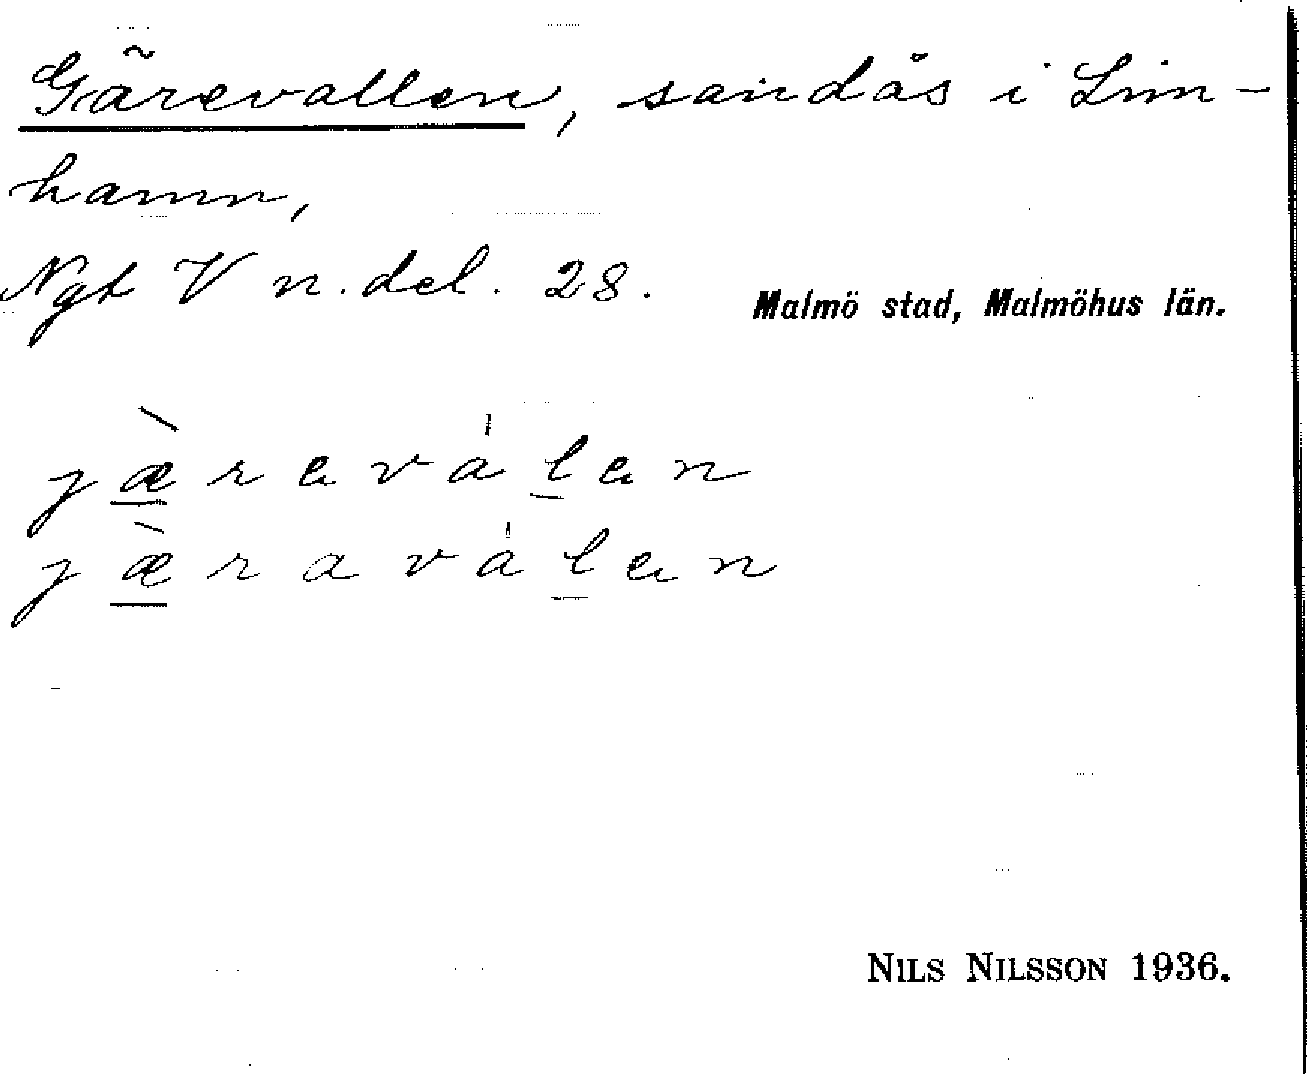 Gärevallen, sandås i Lim-
hamn,
Ngt V n. del. 28.
Malmö stad, Malmöhus län.
jæ̀revålen
jæ̀ravålen
NILS NILSSON 1936.